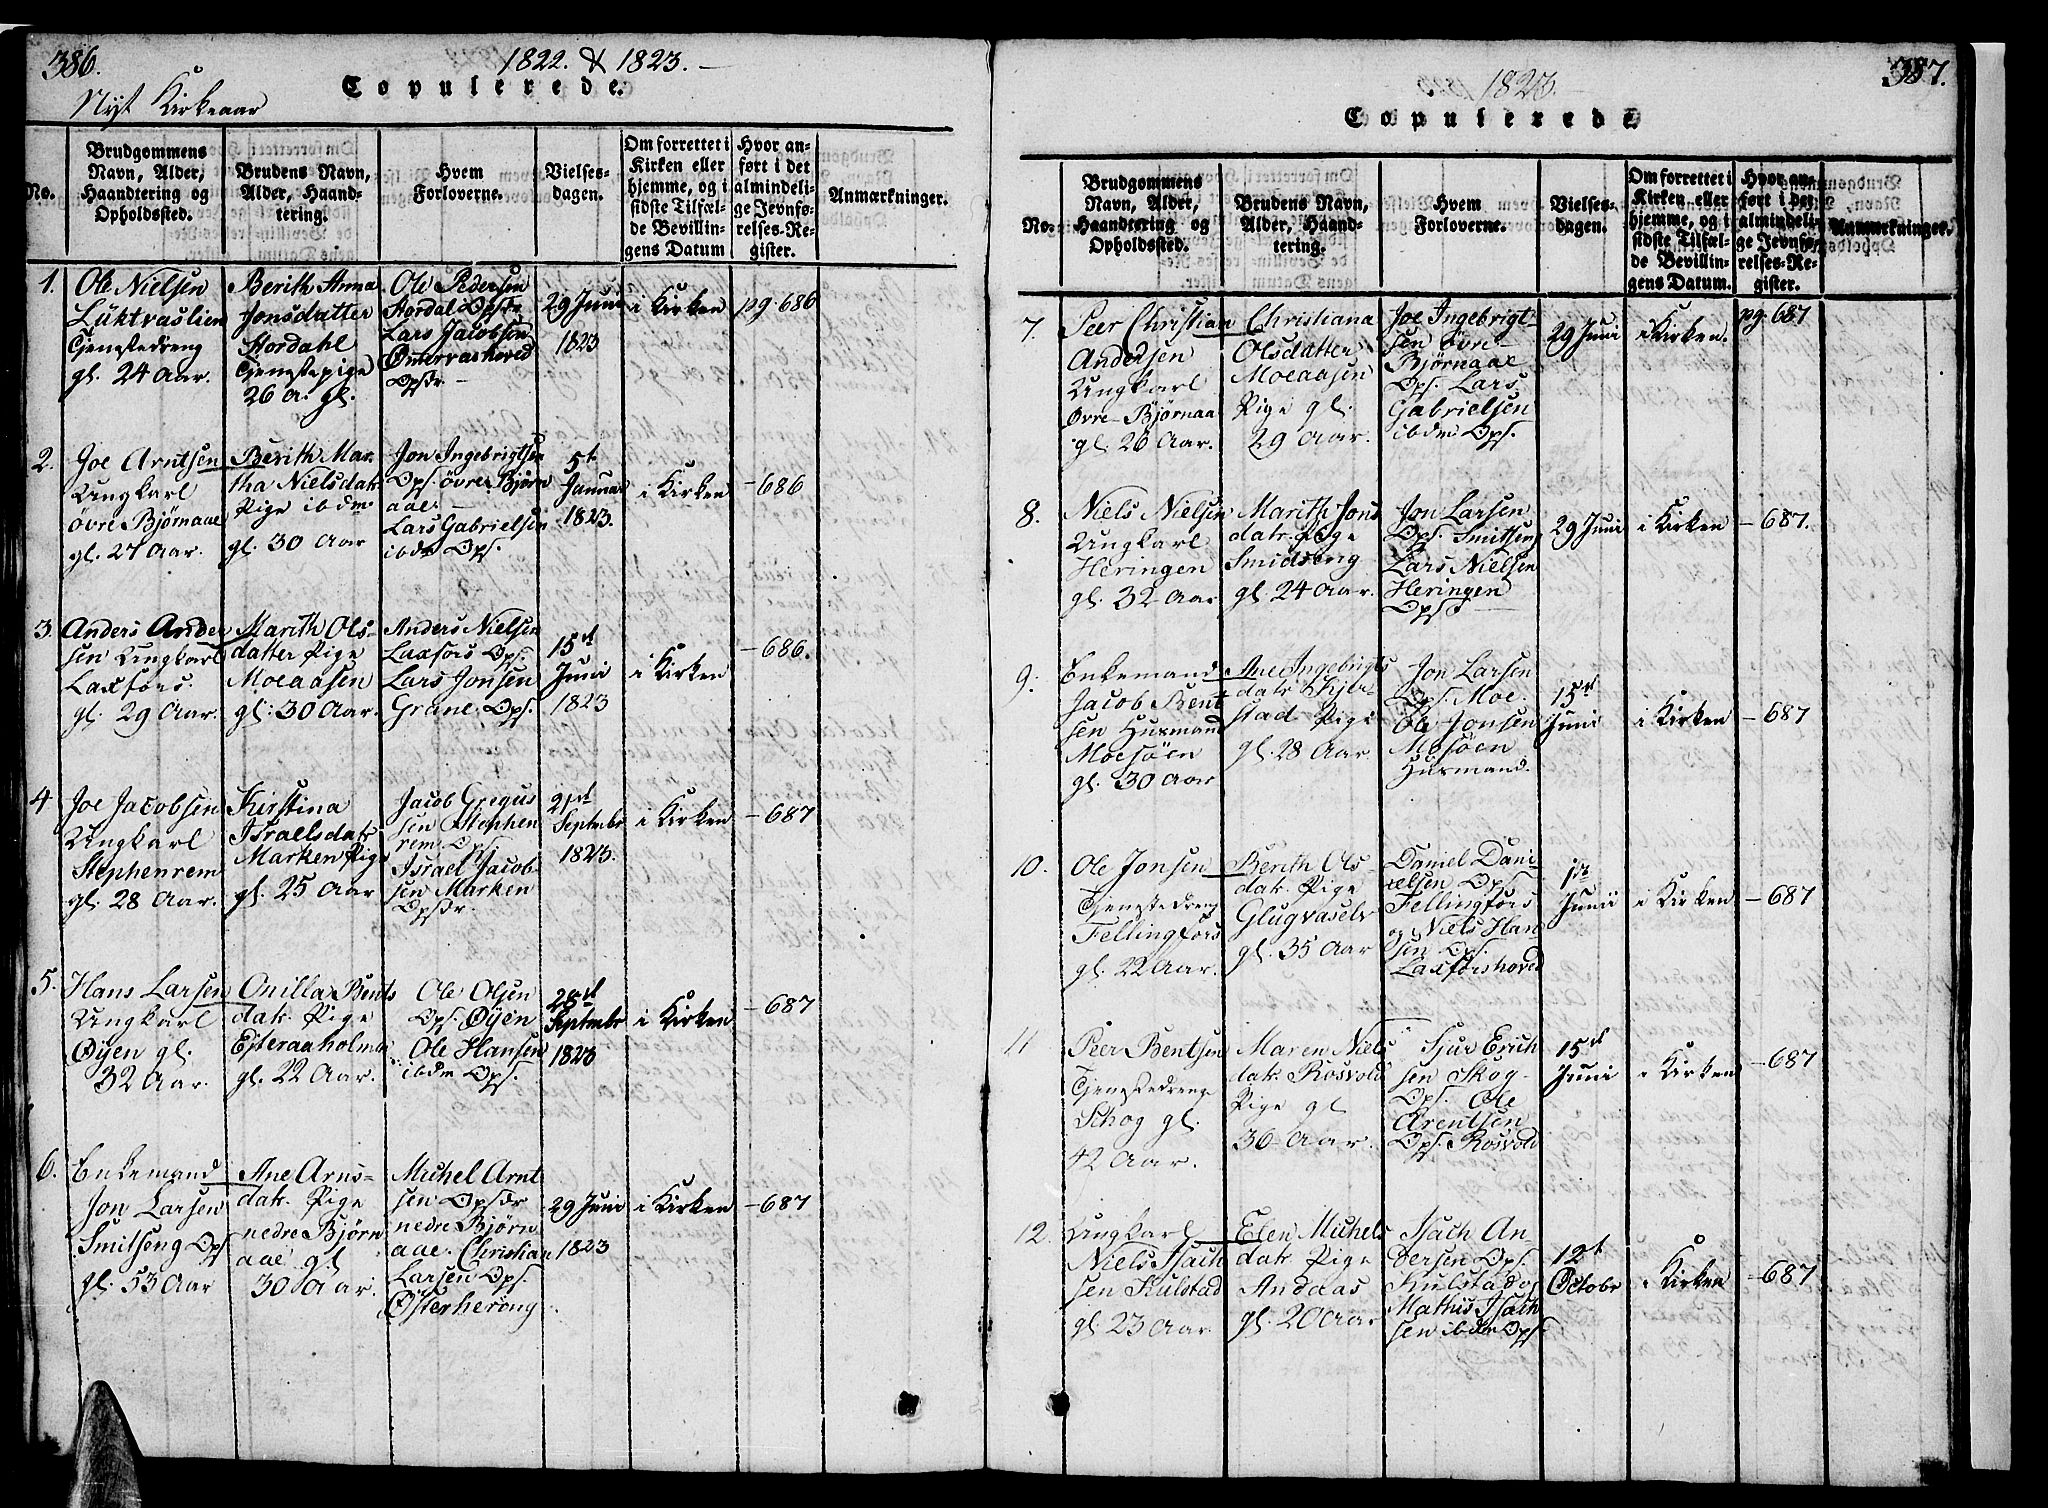 386.
1822. & 1823.
Nyt Kirkeaar
Copulerede.
No.
Brudgommens
Navn, Alder,
Haandtering og
Opholdssted.
Brudens Navn,
Alder, Haand-
tering.
Hvem
Forloverne.
Vielses-
dagen.
Om forrettet i
Kirken eller
hjemme, og i
sidste Tilfæl-
de Bevillin-
gens Datum
Hvor an-
ført i det
almindeli-
ge Jevnfø-
relses-Re-
gister.
Anmærkninger.
1.
Ole Nielsen
Luktvaslien
Tjenestedreng
gl. 24 Aar.
Berith Anna
Jonsdatter
Stordahl
Tjenestepige
26 a. gl.
Ole Pedersen
Stordal Opsr.
Lars Jacobsen
Ømmervashoved
Opsr.
29 Juni
1823
i Kirken
pg. 686
2.
Joe Arntsen
Ungkarl
øvre Bjørnaae
gl. 27 Aar.
Berith Mar-
tha Nielsdatr
Pige ibdm
gl. 30 Aar
Jon Ingebrigtsen
Ops. øvre Bjørn
aae.
Lars Gabrielsen
ibdm Ops.
5t
Januar
1823.
i Kirken
- 686
3.
Anders Ander
sen Ungkarl
Laxfors.
gl. 29 Aar.
Marith Ols-
datter Pige
Moeaasen
gl. 30 Aar.
Anders Nielsen
Laxfors Ops.
Lars Jonsen
Grane. Ops.
15d
Juni
1823
i Kirken
- 686.
4
Joe Jacobsen
Ungkarl
Stephenrem
gl. 28 Aar.
Kirstina
Israelsdatr
Marken Pige
gl. 25 Aar
Jacob Gregus
sen Stephen
rem Ops.
Israel Jacob-
sen Marken
Opsdr.
21st
Septembr
1823.
i Kirken
- 687
5.
Hans Larsen
Ungkarl
Øyen gl.
32 Aar.
Onilla Bents
datr. Pige
Efteraaholmen
gl. 22 Aar.
Ole Olsen
Ops. Øyen
Ole Hansen
ibdm Ops.
28d
Septembr
1823
i Kirken
- 687
6.
Enkemand
Jon Larsen
Smitseng Ops
gl. 53 Aar
Ane Arns-
datr. Pige
nedre Bjørn
aae gl.
30 Aar.
Michel Arnt
sen Opsdr
nedre Bjørn
aae. Christian
Larsen Ops.
Østerherong
29 Juni
1823
i Kirken
- 687
387.
1823.
Copulerede
No.
Brudgommens
Navn, Alder,
Haandtering og
Opholdssted.
Brudens Navn,
Alder, Haand-
tering.
Hvem
Forloverne.
Vielses-
dagen.
Om forrettet i
Kirken eller
hjemme, og i
sidste Tilfæl-
de Bevillin-
gens Datum.
Hvor an-
ført i det
almindeli-
ge Jevnfø-
relses-Re-
gister.
Anmærkninger.
7.
Peer Christian
Andersen
Ungkarl
Øvre Bjørnaa
gl. 26 Aar.
Christiana
Olsdatter
Moeaasen
Pige gl.
29 Aar.
Joe Ingebrigt-
sen øvre
Bjørnaae
Ops. Lars
Gabrielsen
ibdm Ops.
29 Juni
i Kirken.
pg. 687
8.
Niels Nielsen
Ungkarl
Heringen
gl. 32 Aar
Marith Jons
datr. Pige
Smidseng
gl. 24 Aar.
Jon Larsen
Ops. Smitseng
Lars Nielsen
Heringen
Ops
29 Juni
i Kirken
- 687.
9.
Enkemand
Jacob Bent
sen Husmand
Moesøen
gl. 30 Aar
Ane Ingebrigts
datr. Skjer-
stad Pige
gl. 28 Aar.
Jon Larsen
Ops. Moe.
Ole Jonsen
Mosøen
Husmand.
15d
Juni
i Kirken
- 687
10.
Ole Jonsen
Tjenestedreng
Fellingfors
gl. 22 Aar.
Berith Ols-
datr. Pige
Glugvaselv
gl. 35 Aar
Daniel Dani-
elsen Ops.
Fellingfors
og Niels Han
sen Ops.
Laxforshoved
1ste
Junii
i Kirken
- 687
11
Peer Bentsen
Tjenestedreng
Schog gl.
42 Aar.
Maren Niels
datr. Rosvold
Pige gl
36 Aar.
Sjur Erich
sen Skog-
Ops. Ole
Arentsen
Ops. Rosvold
15d
Juni
i Kirken
- 687
12.
Ungkarl
Niels Isach
sen Kulstad
gl. 23 Aar.
Elen Michels
datr. Pige
Andaas
gl. 20 Aar
Isach An-
dersen Ops.
Kulstad og
Mathis Isach
sen ibdm Ops.
12t
Octobr
i Kirken
- 687